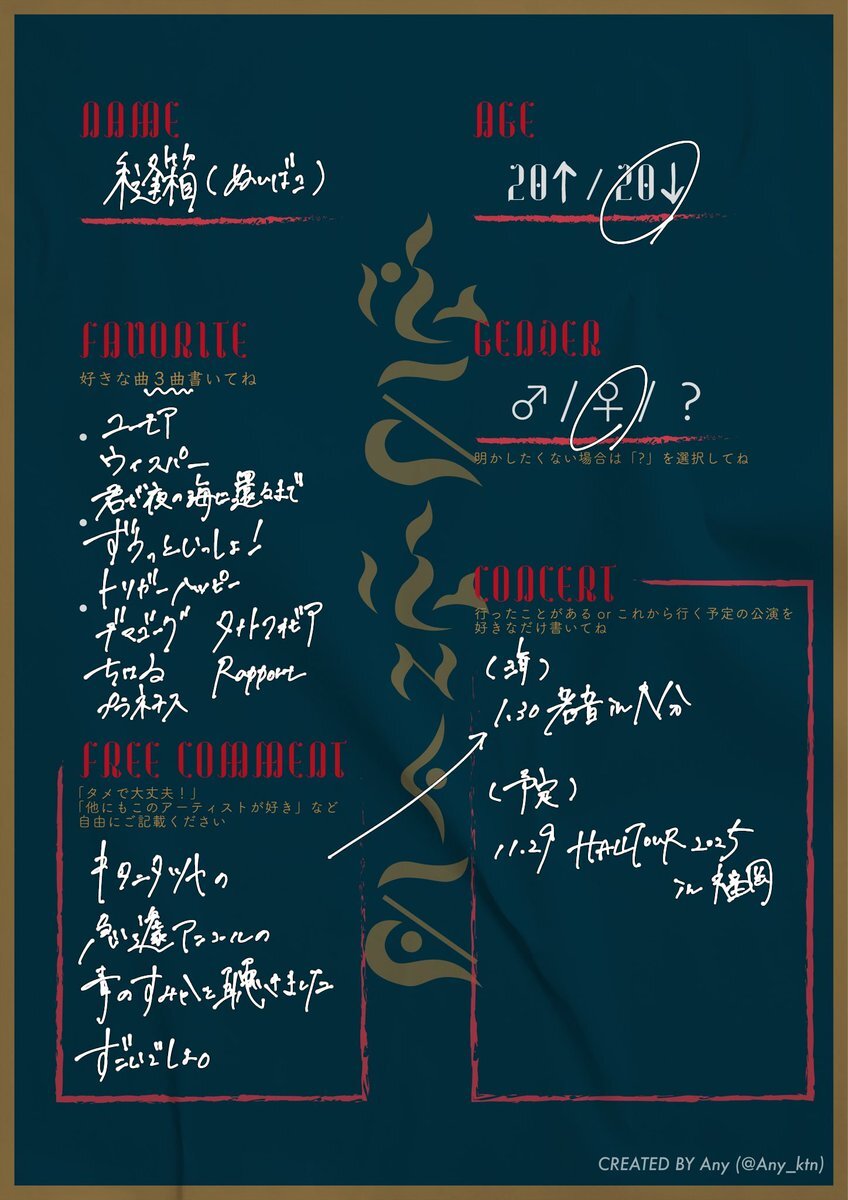 NAME
縫箱(ぬいばこ)
AGE
20↑/20↓
FAVORITE
好きな曲3曲書いてね
・ユーモア
ウィスパー
君が夜の海に還るまで
・ずうっといっしょ!
トリガーハッピー
・デマゴーグ タナトフォビア
ちはる Rapport
プラネテス
GENDER
♂/♀/?
明かしたくない場合は「?」を選択してね
CONCERT
行ったことがある or これから行く予定の公演を
好きなだけ書いてね
(済)
1.30 君音 in 大分
(予定)
11.29 HALLTOUR 2025
in 福岡
FREE COMMENT
「タメで大丈夫!」
「他にもこのアーティストが好き」など
自由にご記載ください
キタニタツヤの
急遽アンコールの
青のすみかを聴きました
すごいでしょ。
CREATED BY Any (@Any_ktn)